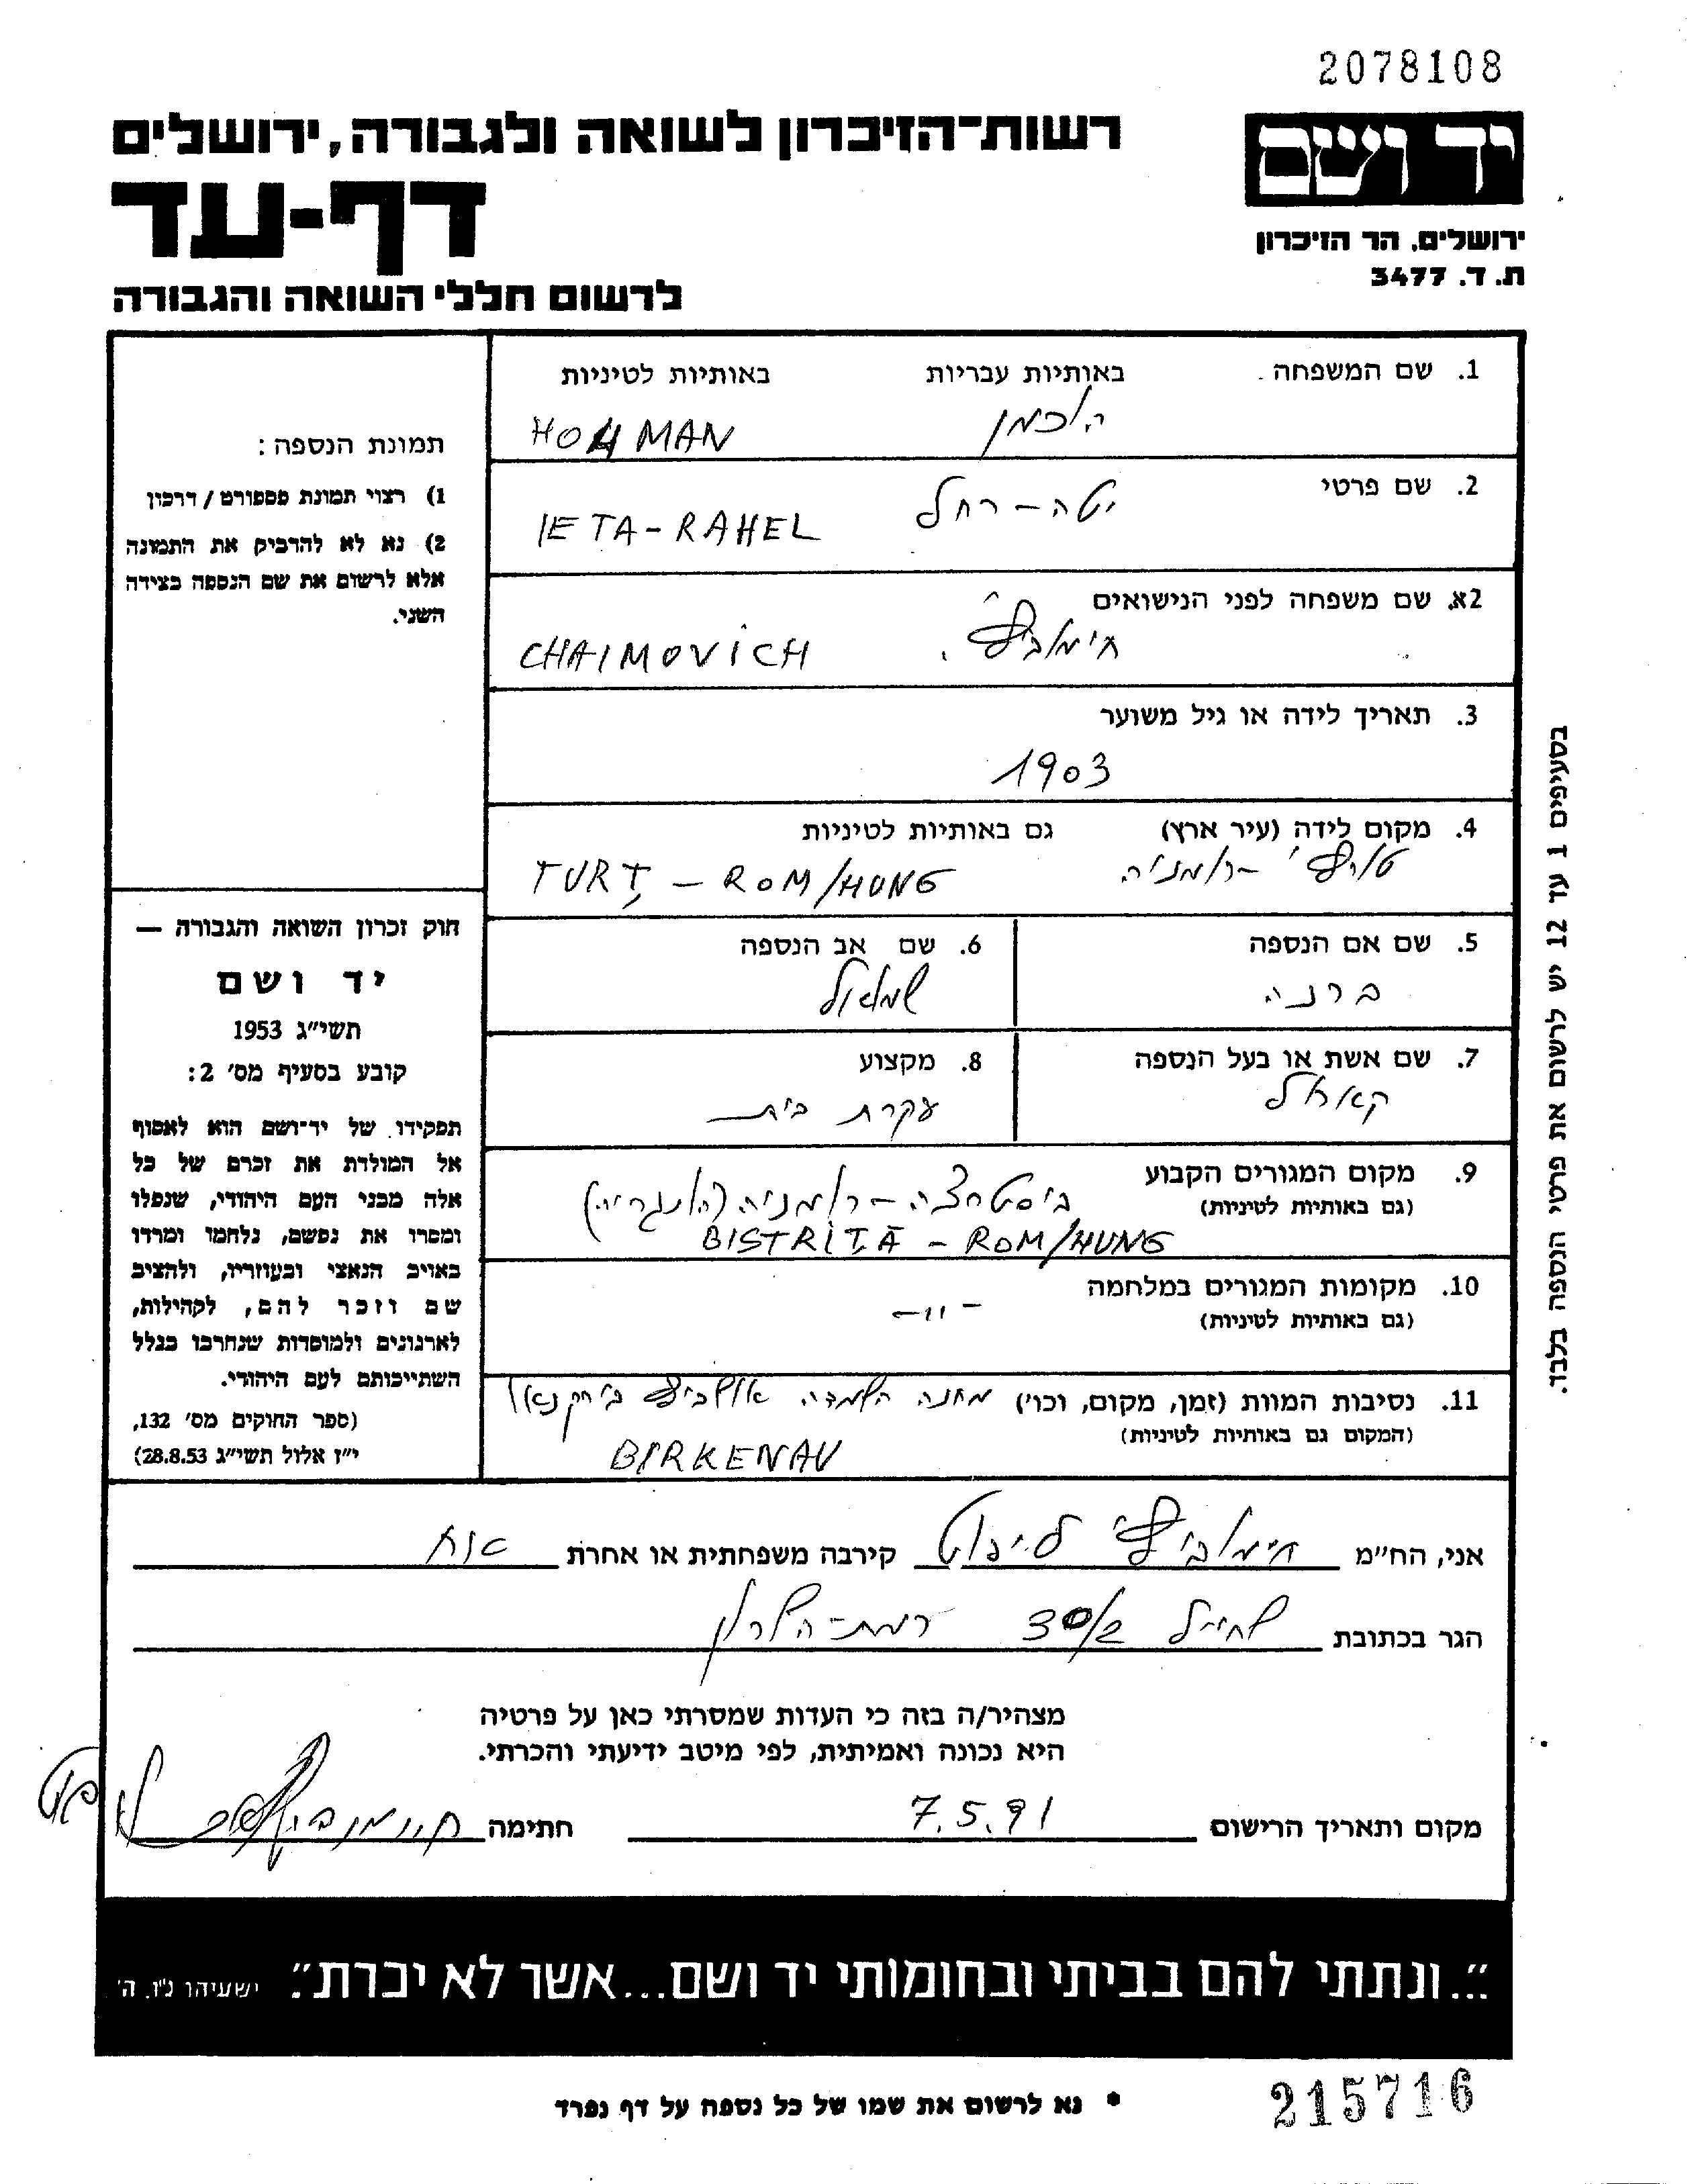 2078108
רשות־הזיכרון לשואה ולגבורה, ירושלים
יד ושם
דף-עד
ירושלים, הר הזיכרון
ת. ד. 3477
לרשום חללי השואה והגבורה
1. שם המשפחה באותיות עבריות באותיות לטיניות
הוכמן HOHMAN
2. שם פרטי
יטה - רחל IETA-RAHEL
2א. שם משפחה לפני הנישואים
חיימוביץ CHAIMOVICH
3. תאריך לידה או גיל משוער
1903
4. מקום לידה (עיר ארץ) גם באותיות לטיניות
טורץ' - רומניה TURŢ - ROM/HUNG
5. שם אם הנספה 6. שם אב הנספה
ברנה שמואל
7. שם אשת או בעל הנספה 8. מקצוע
קארול עקרת בית
9. מקום המגורים הקבוע
(גם באותיות לטיניות)
ביסטריצה - רומניה (הונגריה)
BISTRIŢA - ROM/HUNG
10. מקומות המגורים במלחמה
(גם באותיות לטיניות)
- " -
11. נסיבות המוות (זמן, מקום, וכו') מחנה השמדה אושביץ בירקנאו
(המקום גם באותיות לטיניות)
BIRKENAU
תמונת הנספה:
1) רצוי תמונת פספורט / דרכון
2) נא לא להדביק את התמונה
אלא לרשום את שם הנספה בצידה
השני.
חוק זכרון השואה והגבורה —
יד ושם
תשי״ג 1953
קובע בסעיף מס׳ 2:
תפקידו של יד־ושם הוא לאסוף
אל המולדת את זכרם של כל
אלה מבני העם היהודי, שנפלו
ומסרו את נפשם, נלחמו ומרדו
באויב הנאצי ובעוזריו, ולהציב
שם וזכר להם, לקהילות,
לארגונים ולמוסדות שנחרבו בגלל
השתייכותם לעם היהודי.
(ספר החוקים מס׳ 132,
י״ז אלול תשי״ג 28.8.53)
בסעיפים 1 עד 12 יש לרשום את פרטי הנספה בלבד.
אני, הח״מ חיימוביץ קירבה משפחתית או אחרת אח
הגר בכתובת 30/2 רמת-השרון
מצהיר/ה בזה כי העדות שמסרתי כאן על פרטיה
היא נכונה ואמיתית, לפי מיטב ידיעתי והכרתי.
מקום ותאריך הרישום 7.5.91 חתימה
״...ונתתי להם בביתי ובחומותי יד ושם...אשר לא יכרת״. ישעיהו נ״ו, ה׳
* נא לרשום את שמו של כל נספה על דף נפרד
215716